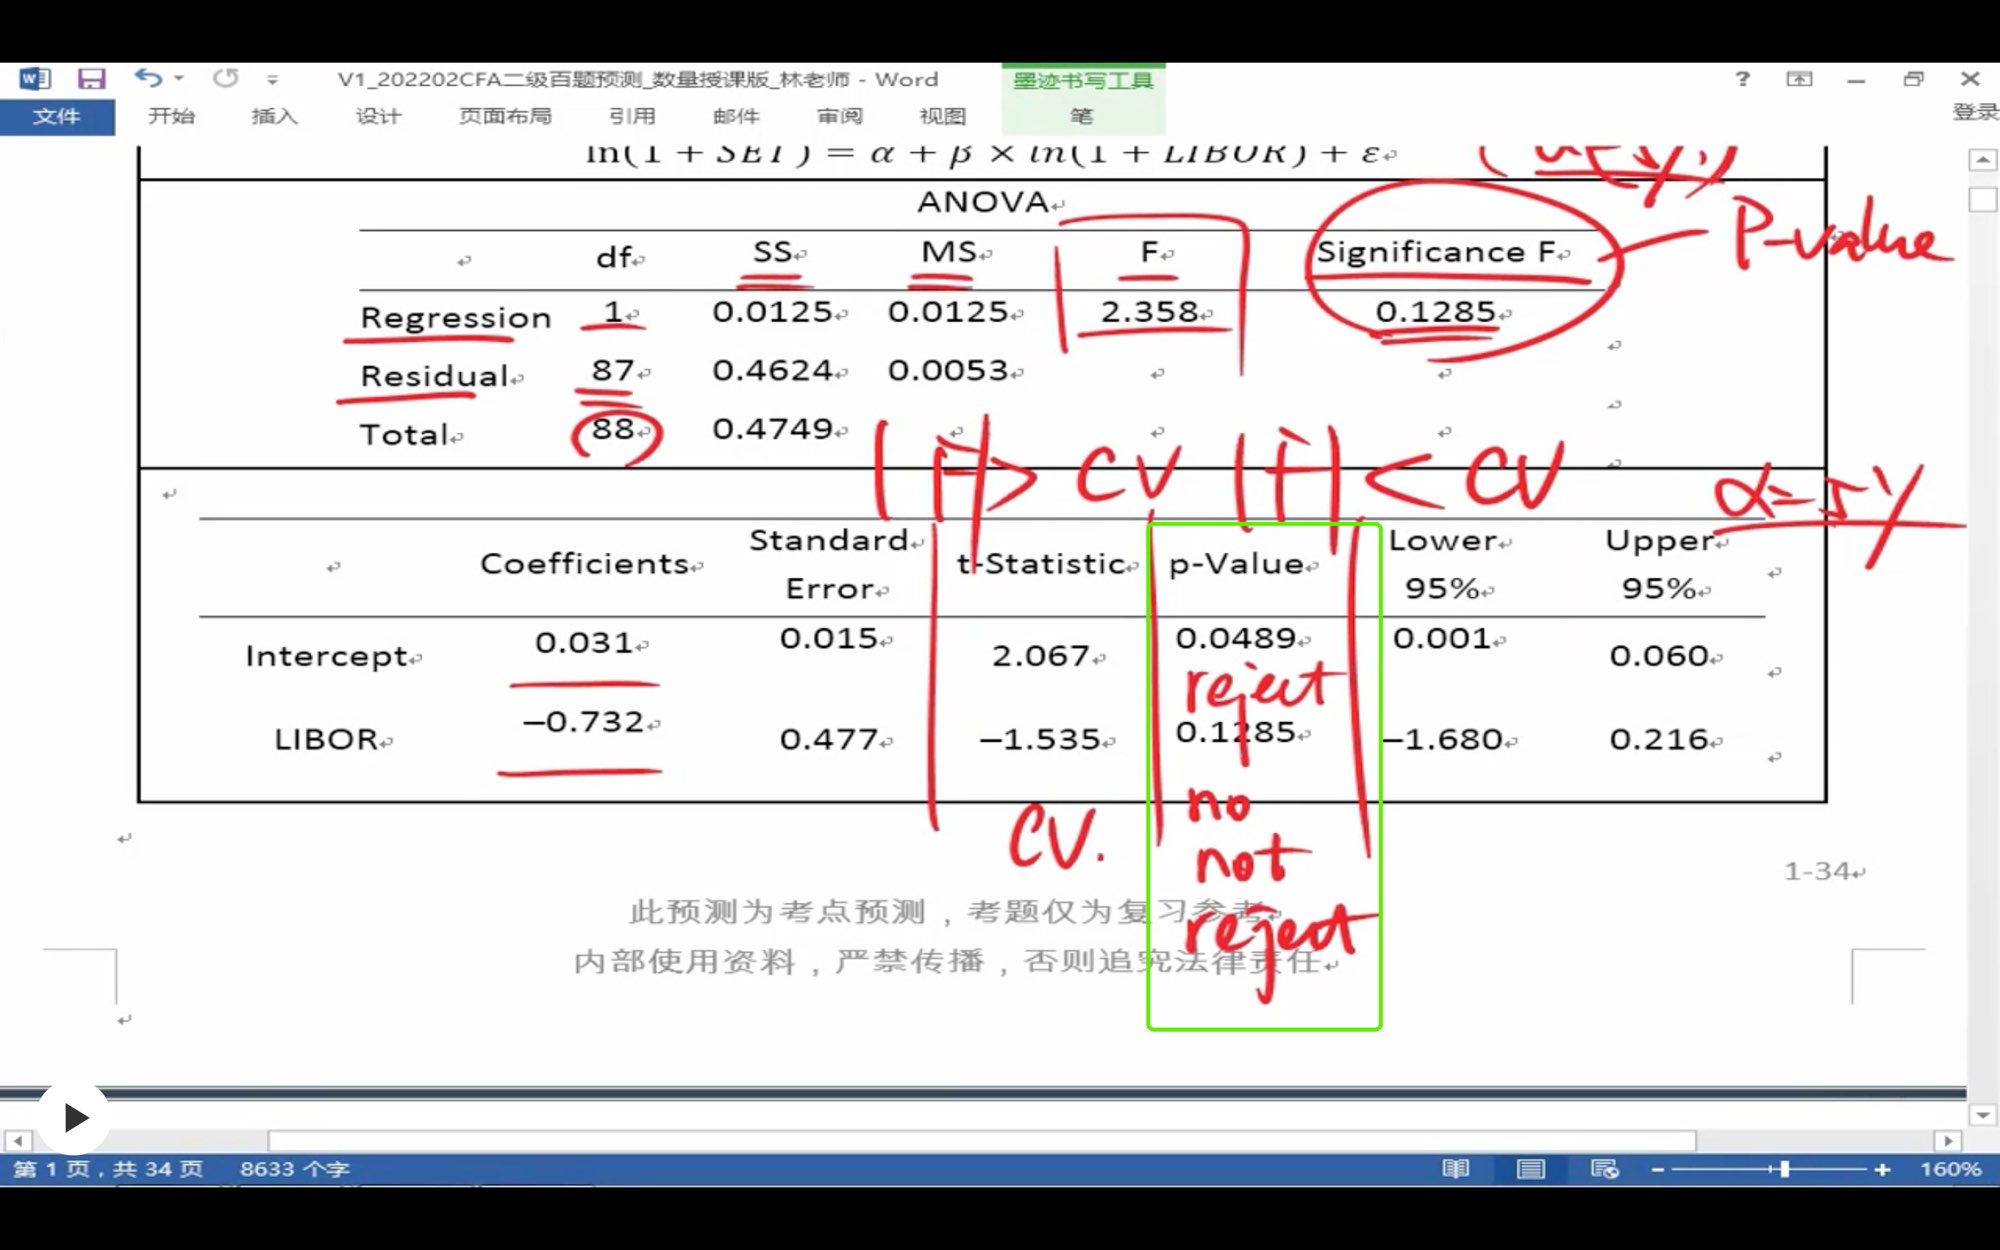 V1_202202CFA二级百题预测_数量授课版_林老师 - Word
墨迹书写工具
?
文件 开始 插入 设计 页面布局 引用 邮件 审阅 视图 笔 登录
ln(1 + SET ) = α + β × ln(1 + LIBOR) + ε
ANOVA
df SS MS F Significance F
P-value
Regression 1 0.0125 0.0125 2.358 0.1285
Residual 87 0.4624 0.0053
Total 88 0.4749
> CV |t| < CV
α=5%
Coefficients Standard Error t-Statistic p-Value Lower 95% Upper 95%
Intercept 0.031 0.015 2.067 0.0489 0.001 0.060
reject
LIBOR –0.732 0.477 –1.535 0.1285 –1.680 0.216
no
CV.
not
reject
1-34
此预测为考点预测，考题仅为复习参考
内部使用资料，严禁传播，否则追究法律责任
第 1 页，共 34 页 8633 个字 160%